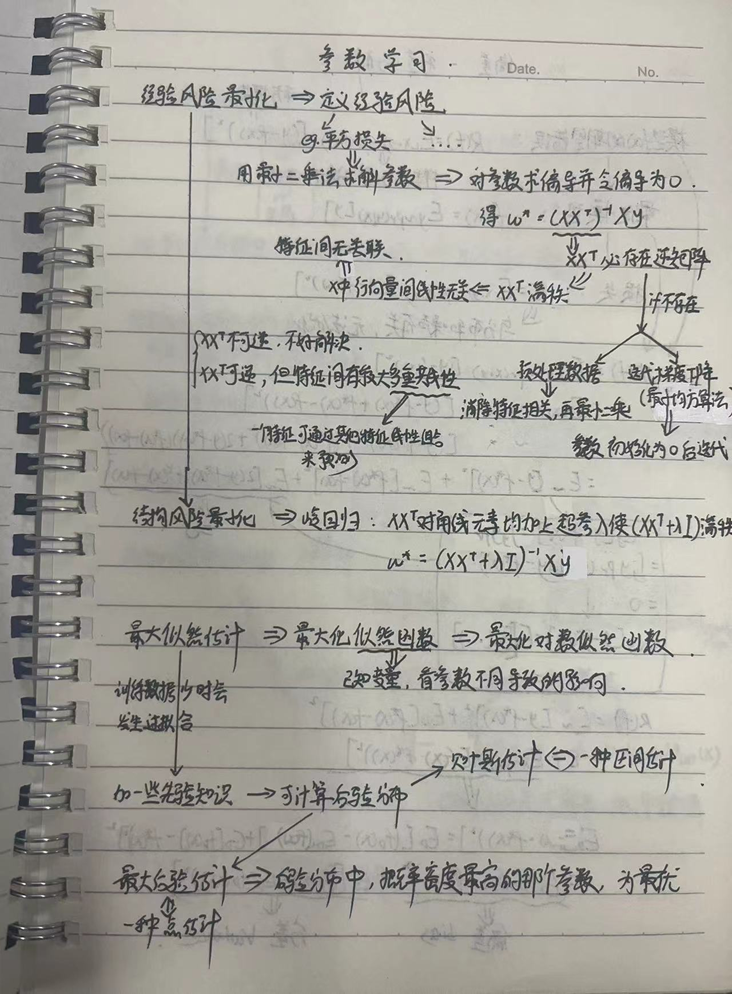 参数学习.
Date.
No.
经验风险最小化 ⇒ 定义经验风险
eg.平方损失 ....
用最小二乘法求解参数 ⇒ 对参数求偏导并令偏导为0.
得 w* = (XXᵀ)⁻¹Xy
特征间无关联. XXᵀ必存在逆矩阵
X中行向量间线性无关 ⇐ XXᵀ满秩
if不存在
XXᵀ不可逆.不好解决.
XXᵀ可逆,但特征间有较大多重共线性
预处理数据 迭代 梯度下降
消除特征相关,再最小二乘 (最小均方算法)
一个特征可通过其他特征线性组合
来预测 参数初始化为0后迭代
结构风险最小化 ⇒ 岭回归: XXᵀ对角线元素均加上超参λ使(XXᵀ+λI)满秩
w* = (XXᵀ+λI)⁻¹Xy
最大似然估计 ⇒ 最大化似然函数 ⇒ 最大化对数似然函数.
已知变量,看参数不同导致的影响.
训练数据少时会
发生过拟合
贝叶斯估计 ⇔ 一种区间估计.
加一些先验知识 → 可计算后验分布
最大后验估计 ⇒ 后验分布中,概率密度最高的那个参数,为最优
一种点估计